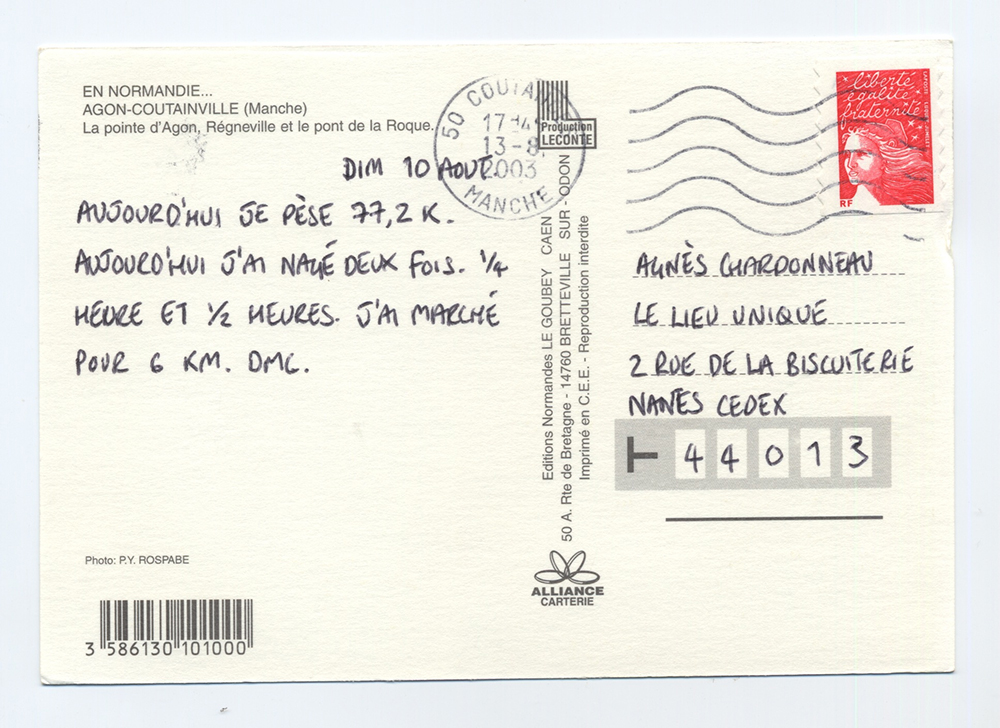 EN NORMANDIE...
AGON-COUTAINVILLE (Manche)
La pointe d'Agon, Régneville et le pont de la Roque.
DIM 10 AOUT.
AUJOURD'HUI JE PÈSE 77,2 K.
AUJOURD'HUI J'AI NAGÉ DEUX FOIS. 1/4
HEURE ET 1/2 HEURES. J'AI MARCHÉ
POUR 6 KM. DMC.
Photo: P.Y. ROSPABE
3 586130 101000
50 COUTA
17
13-8
2003
MANCHE
Production
LECONTE
Editions Normandes LE GOUBEY CAEN
50 A. Rte de Bretagne - 14760 BRETTEVILLE SUR - ODON
Imprimé en C.E.E. - Reproduction interdite
ALLIANCE
CARTERIE
liberté
égalité
fraternité
RF
AGNÈS CHARDONNEAU
LE LIEU UNIQUE
2 RUE DE LA BISCUITERIE
NANES CEDEX
44013